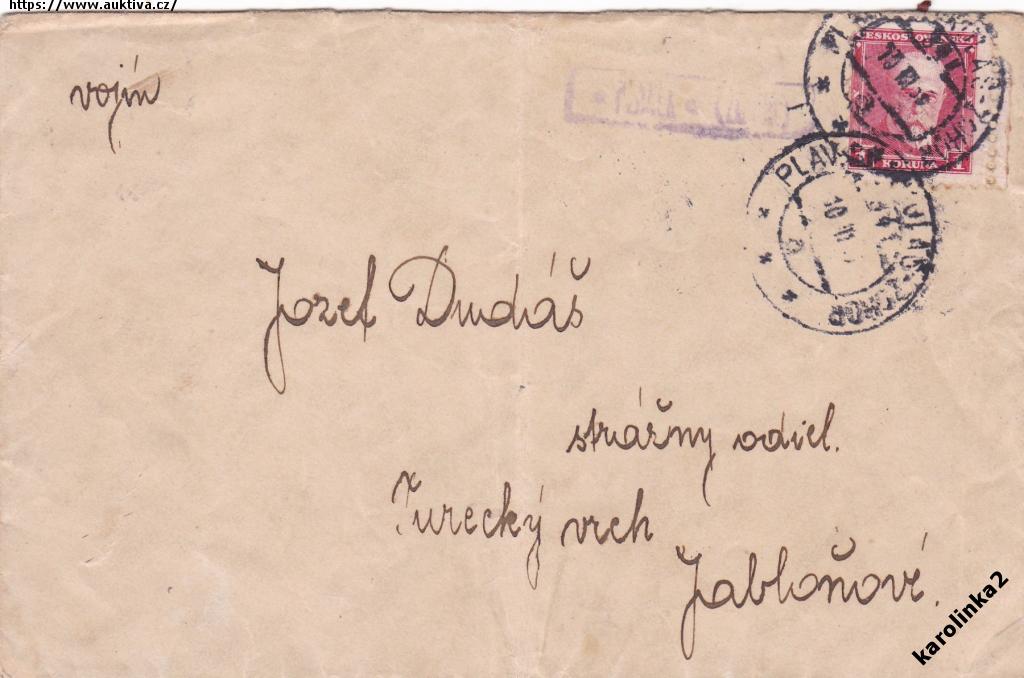 https://www.auktiva.cz/
vojín
ČESKOSLOVENSKO
KORUNA
PLAV
Jozef Dudáš
strážny odiel.
Turecký vrch
Jabloňové.
karolinka2